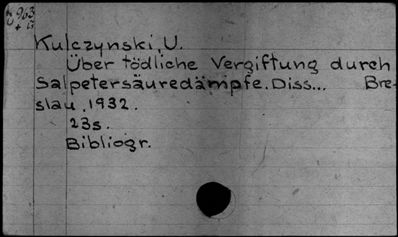 963
Kulczynski, U.
Über tödliche Vergiftung durch
Salpetersäuredämpfe. Diss... Bre-
slau. 1932.
23s.
Bibliogr.